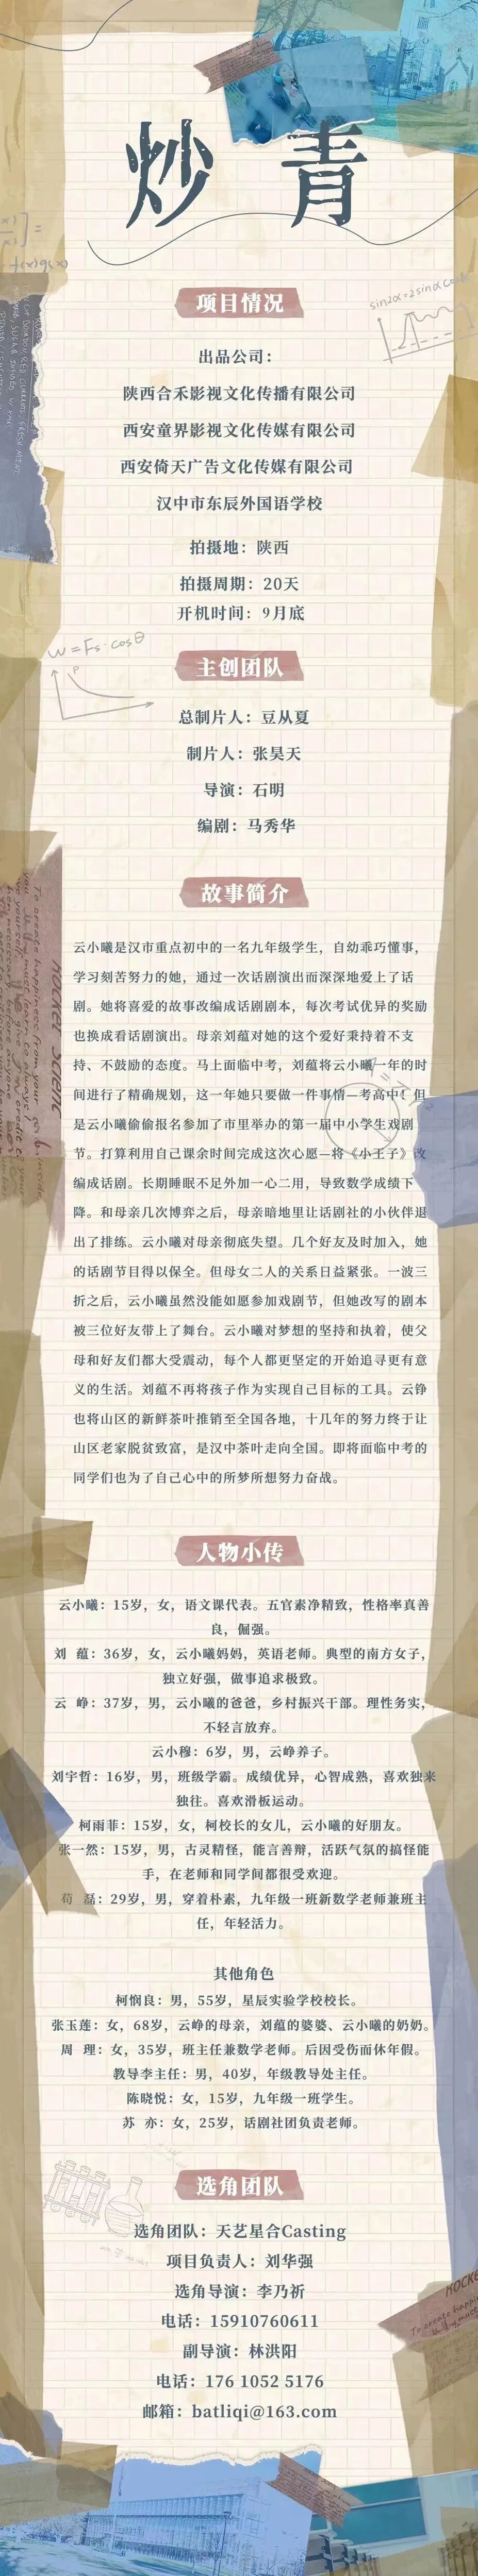 炒青
项目情况
出品公司：
陕西合禾影视文化传播有限公司
西安童界影视文化传媒有限公司
西安倚天广告文化传媒有限公司
汉中市东辰外国语学校
拍摄地：陕西
拍摄周期：20天
开机时间：9月底
主创团队
总制片人：豆从夏
制片人：张昊天
导演：石明
编剧：马秀华
故事简介
云小曦是汉市重点初中的一名九年级学生，自幼乖巧懂事，
学习刻苦努力的她，通过一次话剧演出而深深地爱上了话
剧。她将喜爱的故事改编成话剧剧本，每次考试优异的奖励
也换成看话剧演出。母亲刘蕴对她的这个爱好秉持着不支
持、不鼓励的态度。马上面临中考，刘蕴将云小曦一年的时
间进行了精确规划，这一年她只要做一件事情—考高中！但
是云小曦偷偷报名参加了市里举办的第一届中小学生戏剧
节。打算利用自己课余时间完成这次心愿—将《小王子》改
编成话剧。长期睡眠不足外加一心二用，导致数学成绩下
降。和母亲几次博弈之后，母亲暗地里让话剧社的小伙伴退
出了排练。云小曦对母亲彻底失望。几个好友及时加入，她
的话剧节目得以保全。但母女二人的关系日益紧张。一波三
折之后，云小曦虽然没能如愿参加戏剧节，但她改写的剧本
被三位好友带上了舞台。云小曦对梦想的坚持和执着，使父
母和好友们都大受震动，每个人都更坚定的开始追寻更有意
义的生活。刘蕴不再将孩子作为实现自己目标的工具。云铮
也将山区的新鲜茶叶推销至全国各地，十几年的努力终于让
山区老家脱贫致富，是汉中茶叶走向全国。即将面临中考的
同学们也为了自己心中的所梦所想努力奋战。
人物小传
云小曦：15岁，女，语文课代表。五官素净精致，性格率真善
良，倔强。
刘 蕴：36岁，女，云小曦妈妈，英语老师。典型的南方女子，
独立好强，做事追求极致。
云 峥：37岁，男，云小曦的爸爸，乡村振兴干部。理性务实，
不轻言放弃。
云小穆：6岁，男，云峥养子。
刘宇哲：16岁，男，班级学霸。成绩优异，心智成熟，喜欢独来
独往。喜欢滑板运动。
柯雨菲：15岁，女，柯校长的女儿，云小曦的好朋友。
张一然：15岁，男，古灵精怪，能言善辩，活跃气氛的搞怪能
手，在老师和同学间都很受欢迎。
苟 磊：29岁，男，穿着朴素，九年级一班新数学老师兼班主
任，年轻活力。
其他角色
柯悯良：男，55岁，星辰实验学校校长。
张玉莲：女，68岁，云峥的母亲，刘蕴的婆婆、云小曦的奶奶。
周 理：女，35岁，班主任兼数学老师。后因受伤而休年假。
教导李主任：男，40岁，年级教导处主任。
陈晓悦：女，15岁，九年级一班学生。
苏 亦：女，25岁，话剧社团负责老师。
选角团队
选角团队：天艺星合Casting
项目负责人：刘华强
选角导演：李乃祈
电话：15910760611
副导演：林洪阳
电话：176 1052 5176
邮箱：batliqi@163.com